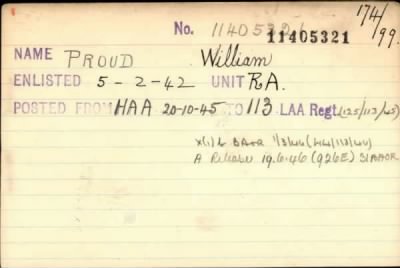 174/99.
No. 11405321 11405321
NAME PROUD William
ENLISTED 5-2-42 UNIT R.A.
POSTED FROM HAA 20-10-45 TO 113 LAA Regt. (125/113/45)
X(i) to BAOR 1/3/46 (44/113/46)
A Release 19.6.46 (926E) BAOR